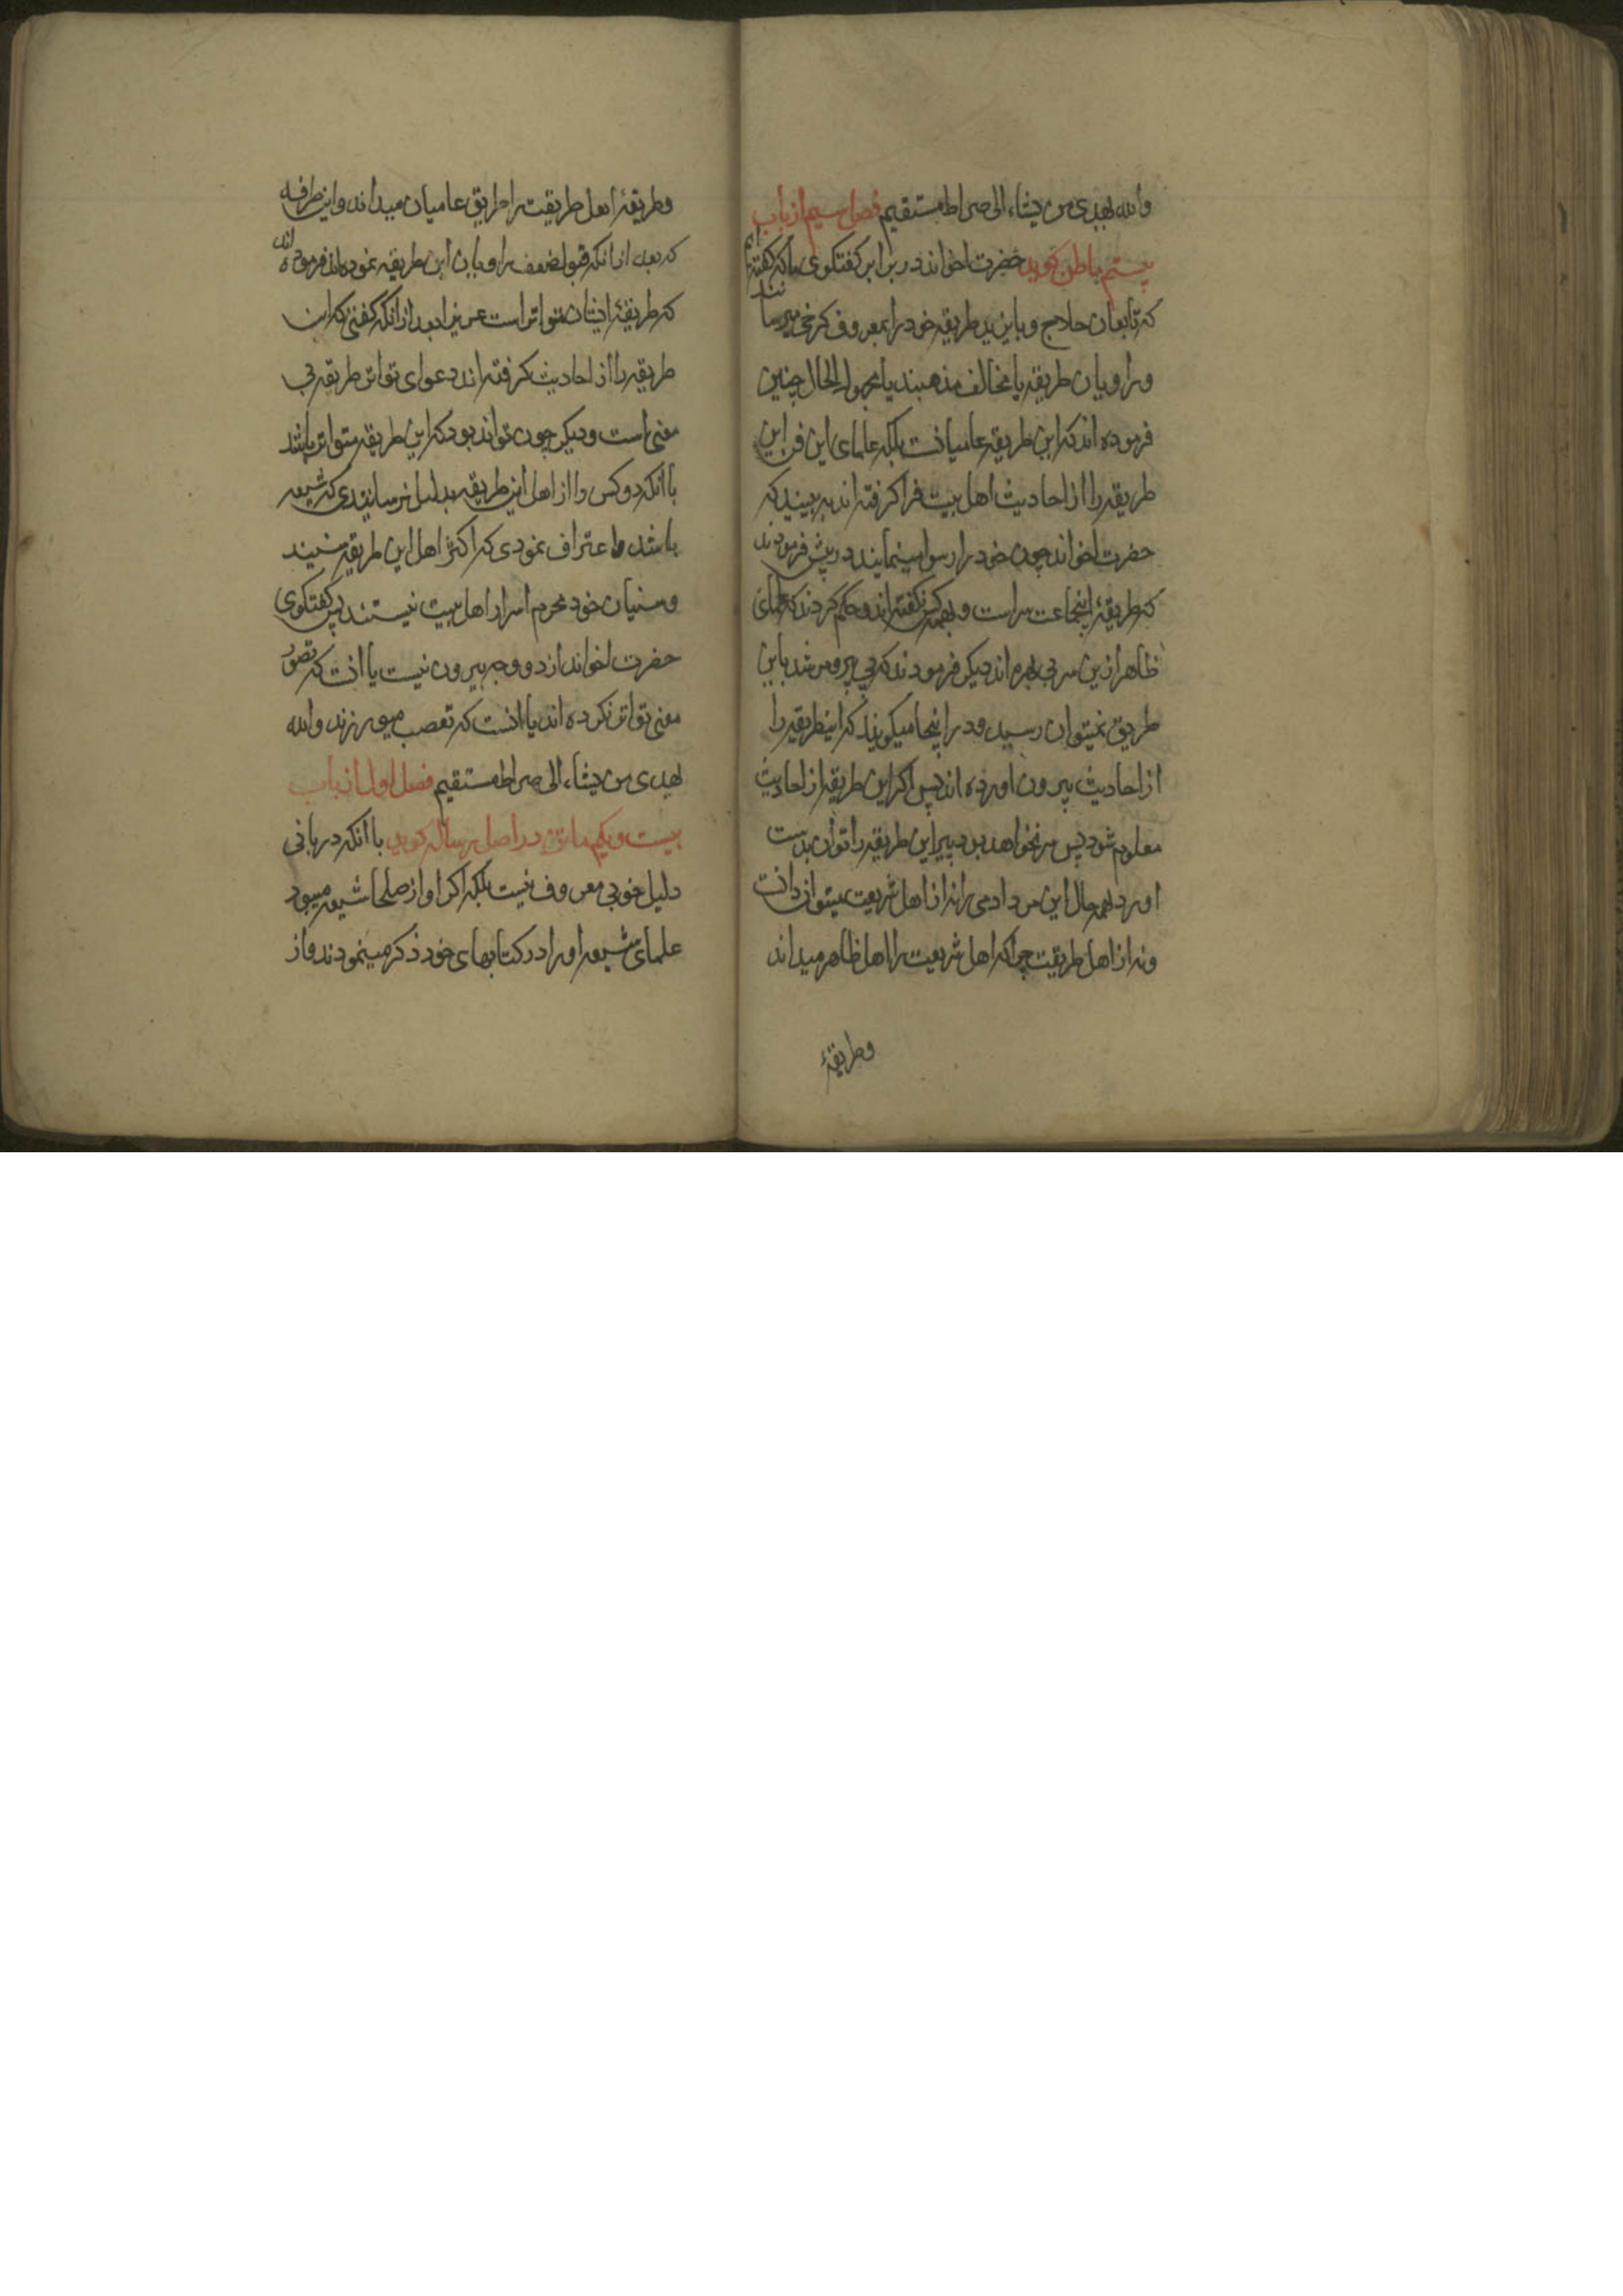 والله یهدی من یشاء الی صراط مستقیم فصل سیم از باب
بیستم ماطن کوید حضرت اخواند در برابر کفتکوی ما که کفته ایم
که تابعان حلاج و بایزید طریقه خود را بمعروف کرخی میرسانند
و راویان طریقه یا مخالف مذهبند یا مجهول الحال چنین
فرموده اند که این طریقه عامیانست بلکه علمای این فن این
طریقه را از احادیث اهل بیت فرا کرفته اند به بینید که
حضرت اخواند چون خود را رسوا مینمایند در پیش فرمودند
که طریقهٔ اینجماعت سر است و بهمه کس نکفته اند و حکم کردند که علمای
ظاهر ازین سر بی بهره اند دیکر فرمودند که بی پیر و مرشد باین
طریق نمیتوان رسید و در اینجا میکویند که اینطریقه را
از احادیث بیرون اورده اند پس اکر این طریقه از احادیث
معلوم شود پس سر نخواهد بود و بی پیر این طریقه را توان بدست
اورد بهمه حال این مرد ادمی را نه از اهل شریعت میتوان دانست
و نه از اهل طریقت چرا که اهل شریعت را اهل ظاهر میداند
وطریقهٔ
وطریقهٔ اهل طریقت را طریق عامیان میداند و این طرفه
که بعد از انکه قبول ضعف راویان این طریقه نموده اند فرموده اند
که طریقهٔ ایشان متواتر است عزیز بعد از انکه کفتی که این
طریقه را از احادیث کرفته اند دعوای تواتر طریقه بی
معنی است و دیکر چون تواند بود که این طریقه متواتر باشد
با انکه دو کس را از اهل این طریقه بدلیل نرسانیدی که شیعه
باشد و اعتراف نمودی که اکثر اهل این طریقه سنیند
و سنیان خود محرم اسرار اهل بیت نیستند پس کفتکوی
حضرت اخواند از دو وجه بیرون نیست یا انست که تصور
معنی تواتر نکرده اند یا انست که تعصب میورزند والله
یهدی من یشاء الی صراط مستقیم فصل اول از باب
بیست ویکم ماتن در اصل رساله کوید با انکه دربانی
دلیل خوبی معروف نیست بلکه اکر او از صلحا شیعه میبود
علمای شیعه او را در کتابهای خود ذکر مینمودند و از